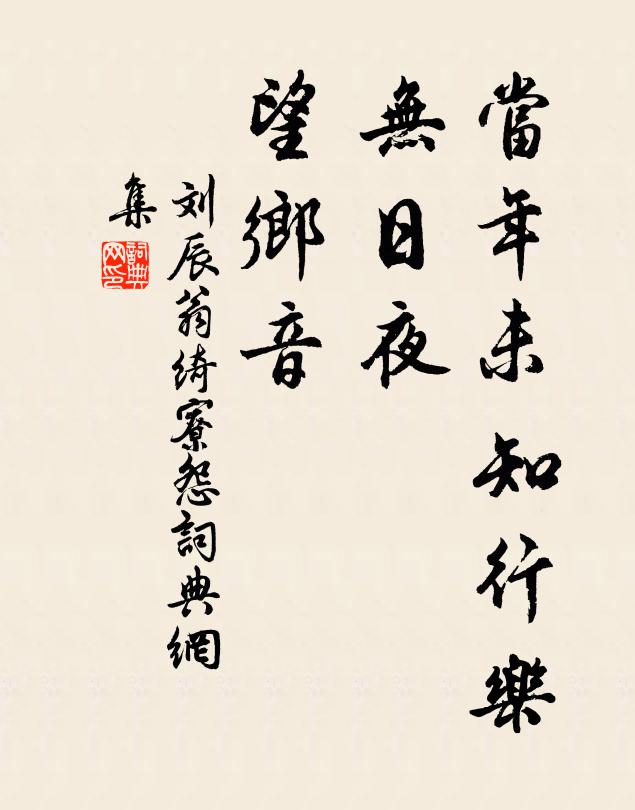 當年未知行樂
無日夜
望鄉音
刘辰翁綺寮怨詞典網
集
詞典
网印